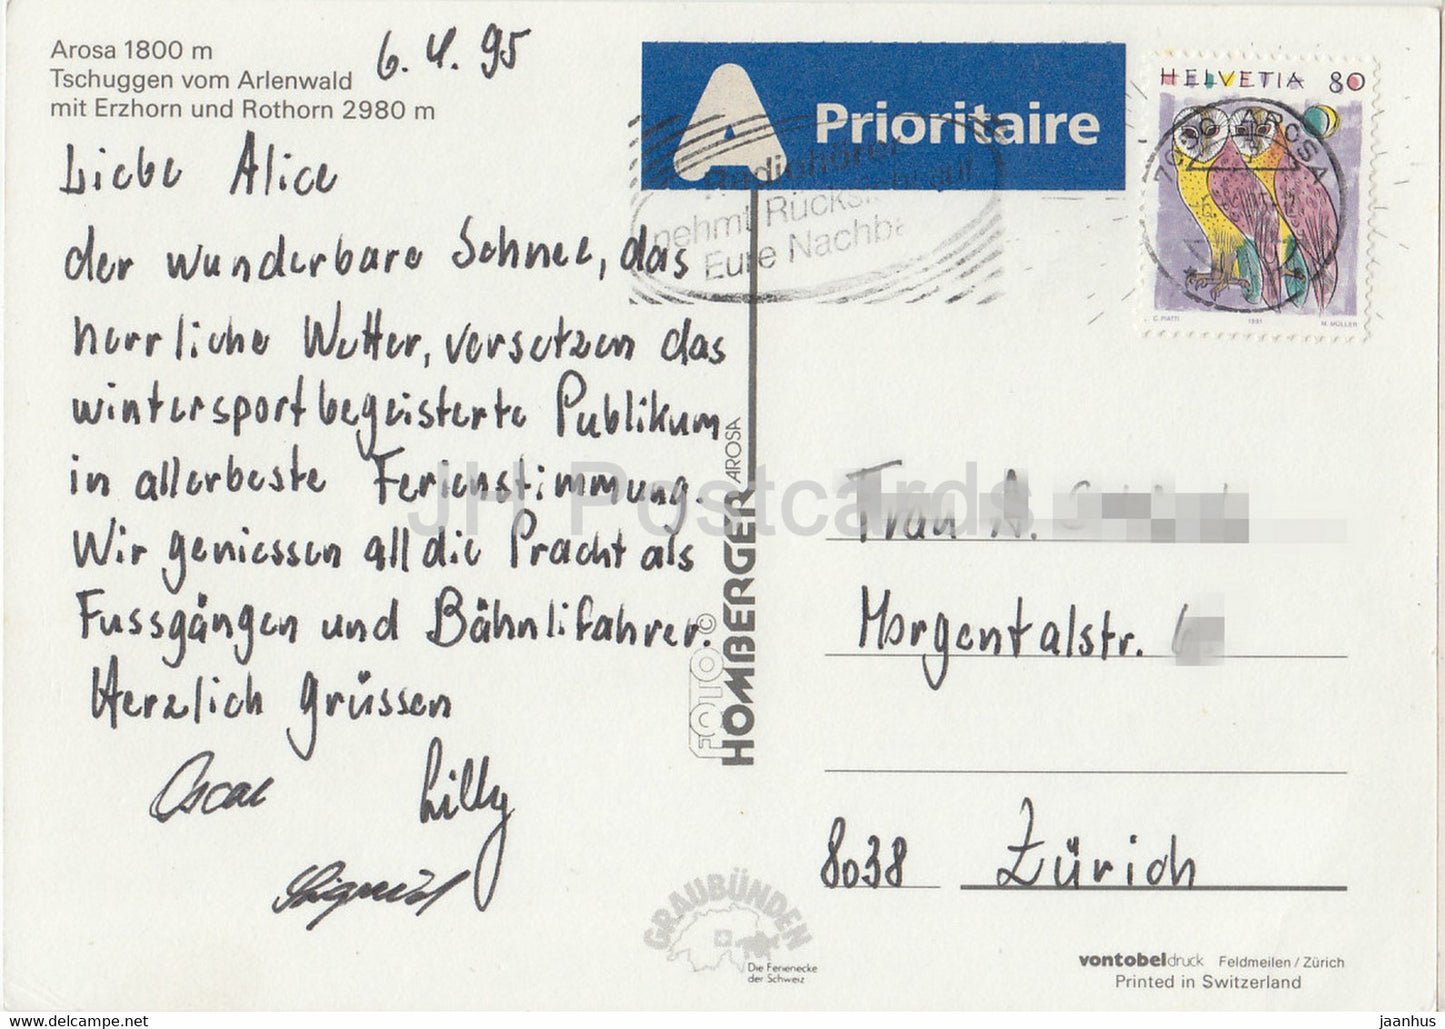 Arosa 1800 m
Tschuggen vom Arlenwald
mit Erzhorn und Rothorn 2980 m
6. 4. 95
Liebe Alice
der wunderbare Schnee, das
herrliche Wetter, versetzen das
wintersportbegeisterte Publikum
in allerbeste Ferienstimmung.
Wir geniessen all die Pracht als
Fussgänger und Bähnlifahrer.
Herzlich grüssen
Oscar Lilly
Sigrid
A Prioritaire
HELVETIA 80
C. PIATTI 1991 M. MÜLLER
7050 AROSA
Radiohörer
nehmt Rücksicht auf
Eure Nachba
FOTO © HOMBERGER AROSA
Frau A.
Morgentalstr.
8038 Zürich
GRAUBÜNDEN
Die Ferienecke
der Schweiz
vontobeldruck Feldmeilen / Zürich
Printed in Switzerland
JH Postcards
www.delcampe.net
jaanhus